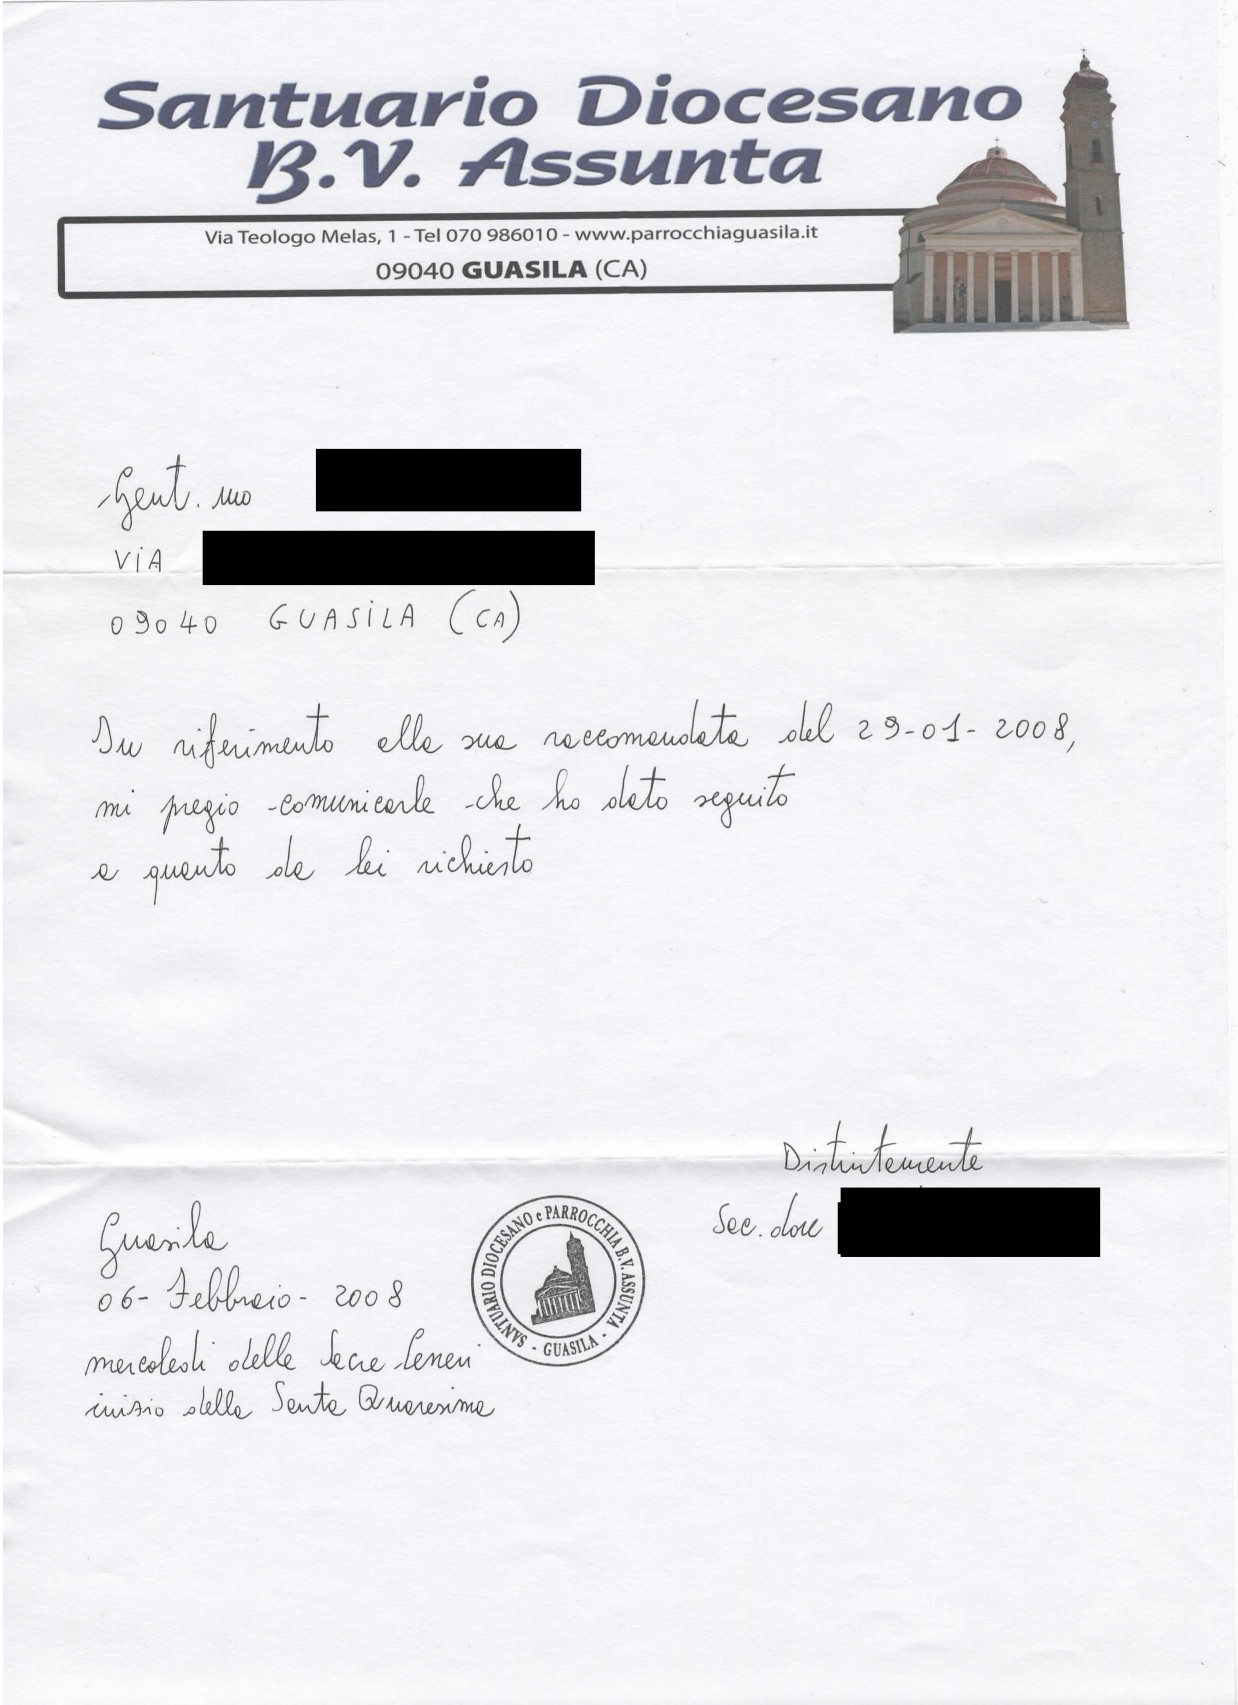 Santuario Diocesano
B.V. Assunta
Via Teologo Melas, 1 - Tel 070 986010 - www.parrocchiaguasila.it
09040 GUASILA (CA)
Gent.mo
VIA
09040 GUASILA (CA)
In riferimento alla sua raccomandata del 29-01-2008,
mi pregio comunicarle che ho dato seguito
a quanto da lei richiesto
Distintamente
Sac. dore
Guasila
06-Febbraio-2008
mercoledi delle Sacre Ceneri
inizio della Santa Quaresima
SANTUARIO DIOCESANO e PARROCCHIA B.V. ASSUNTA
- GUASILA -